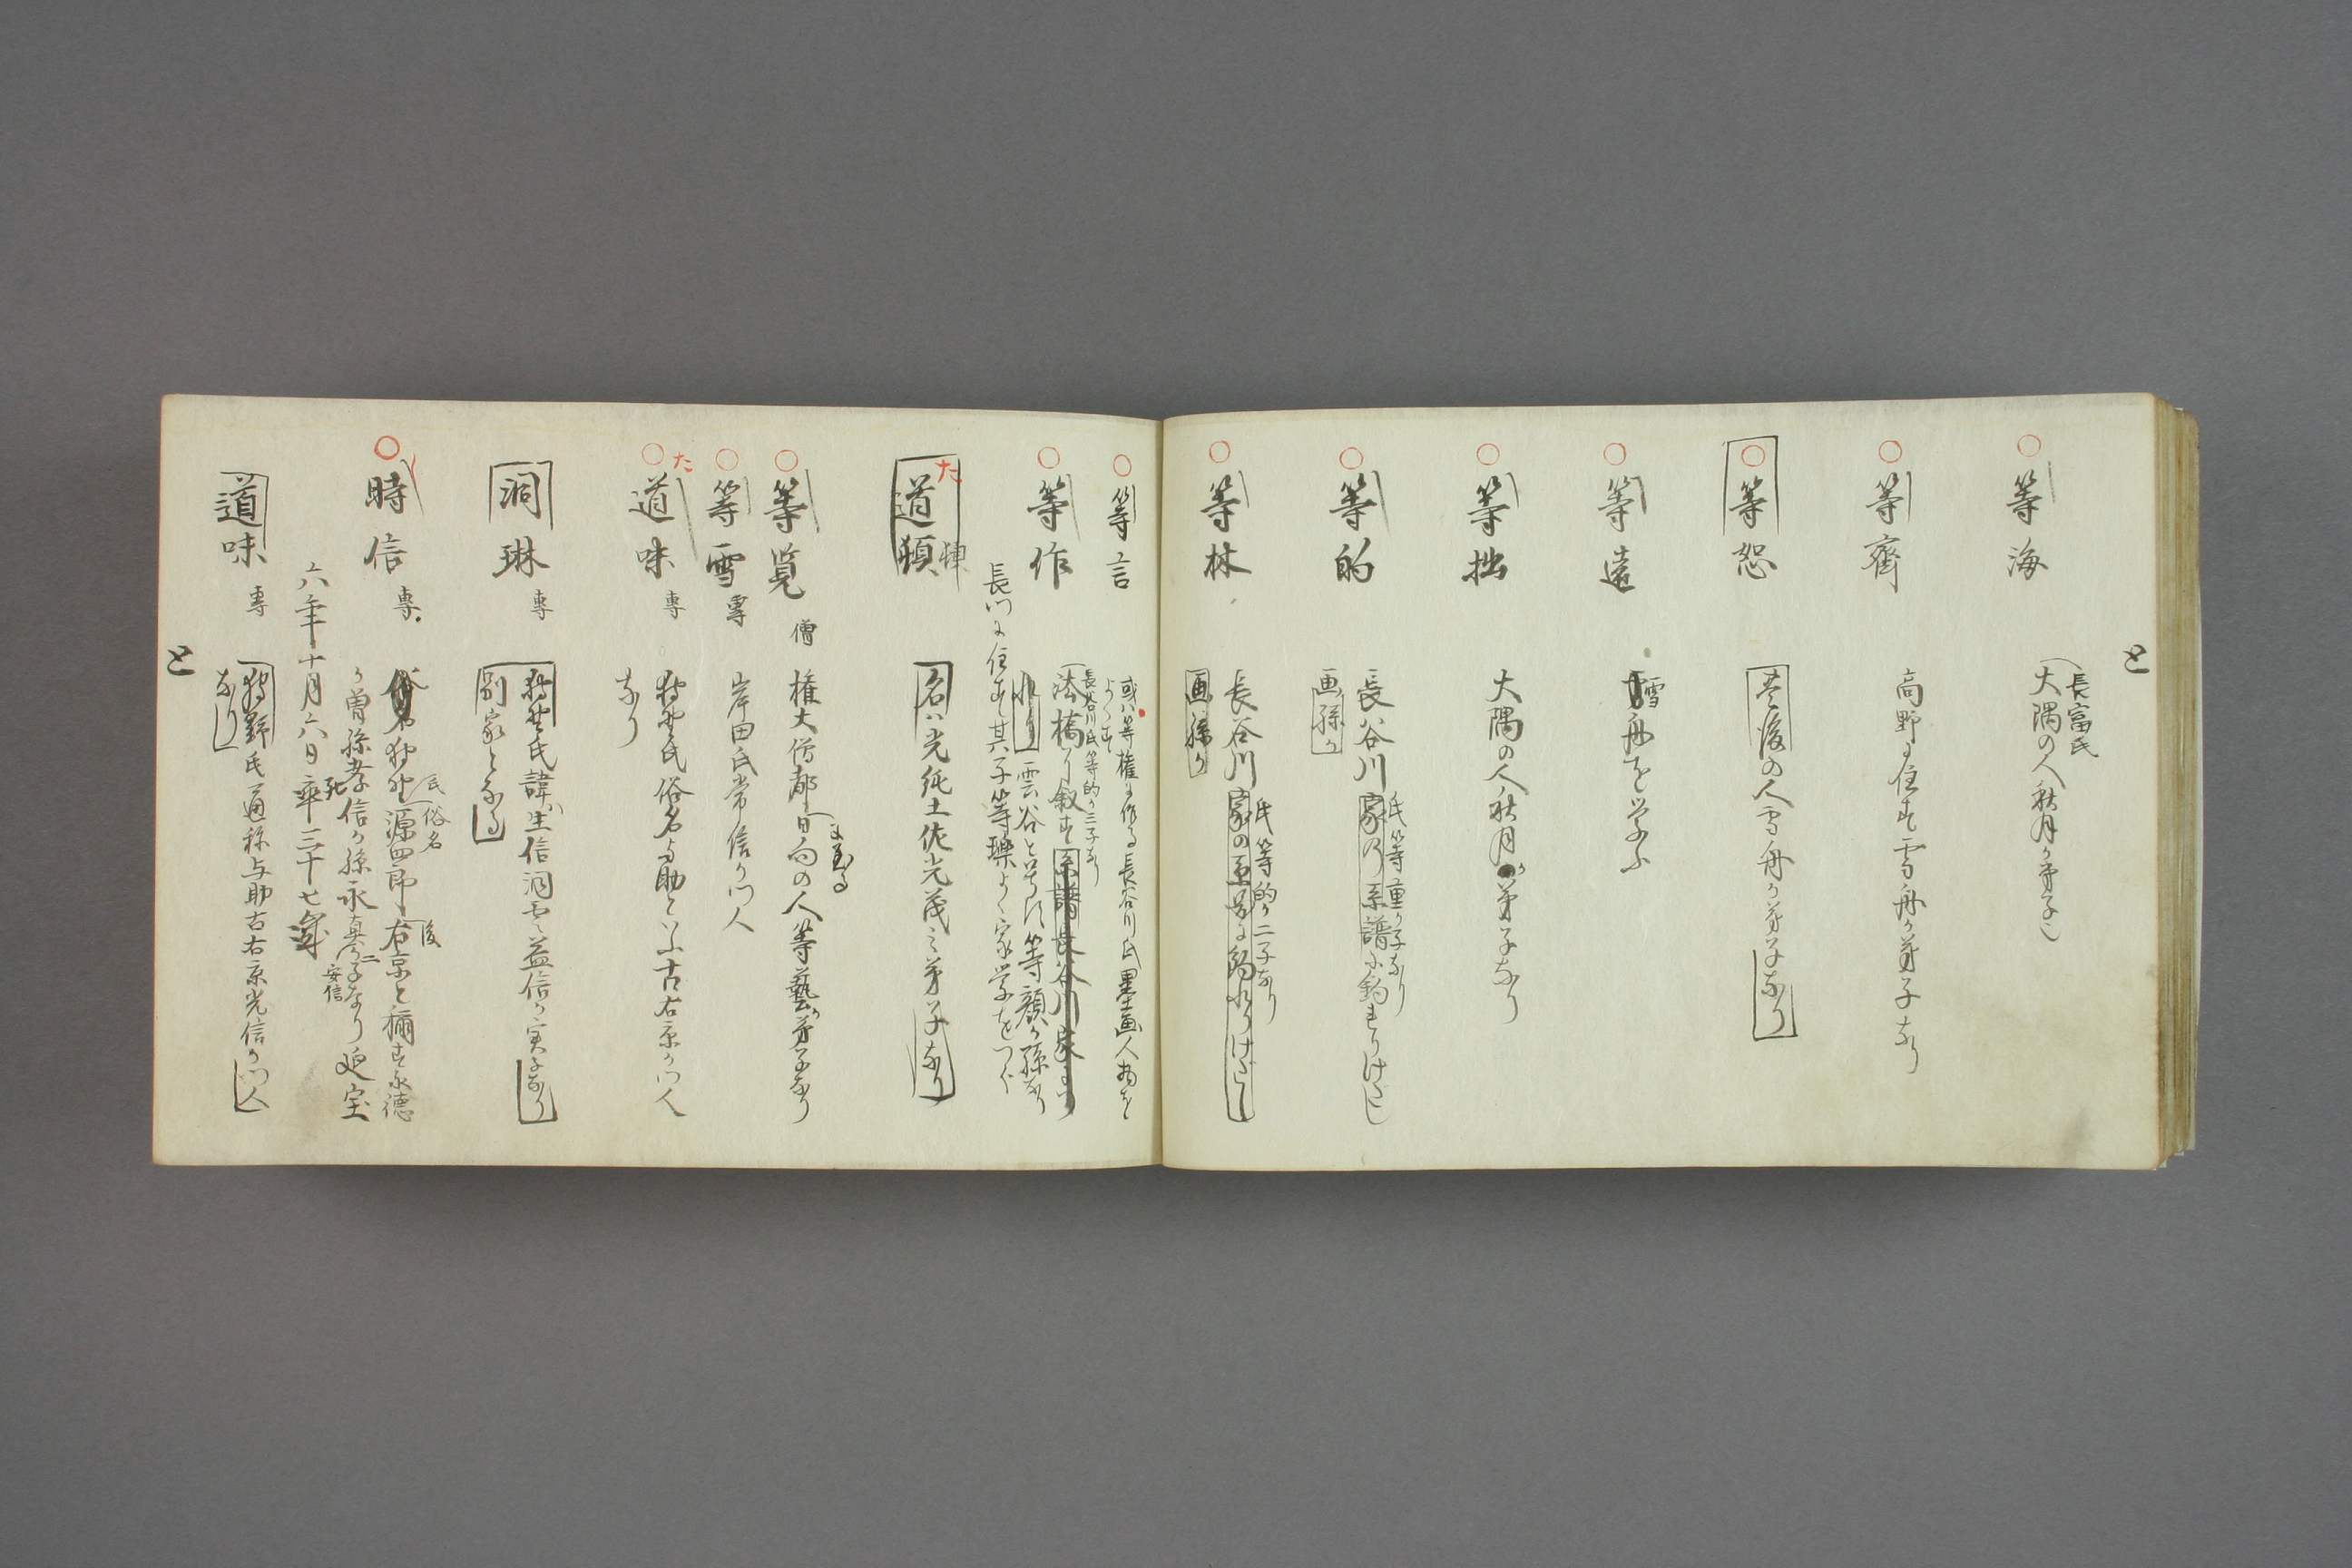 と
等海
長富氏
大隅の人秋月か弟子也
等齊
高野に住す雪舟か弟子なり
等恕
豊後の人雪舟か弟子なり
等遠
雪舟を学ふ
等拙
大隅の人秋月か弟子なり
等的
氏等重か子なり
長谷川家の系譜に
画孫か
等林
氏等的か二子なり
長谷川家の
画孫か
等言
或ハ等権に作る長谷川氏墨画人物を
よくす
等作
長谷川氏等的か三子なり
法橋に叙す系譜長谷川家
雲谷と号す等顔か孫なり
長門に住す其子等璵よく家学をつく
道頓
た
名ハ光純土佐光茂之弟子なり
等覧 僧
権大僧都日向の人等藝か弟子なり
に至る
等雪 専
岸田氏常信か門人
道味 専
た
狩野氏俗名与助といふ古右京か門人
なり
洞琳 専
狩野氏諱ハ生信洞雲益信か実子なり
別家となる
時信 専
氏俗名
狩野源四郎後右京と稱す永徳
か曽孫孝信か孫永真安信か子なり延宝
六年十月六日卒三十七歳
死
道味 専
狩野氏通称与助古右京光信か門人
なり
と